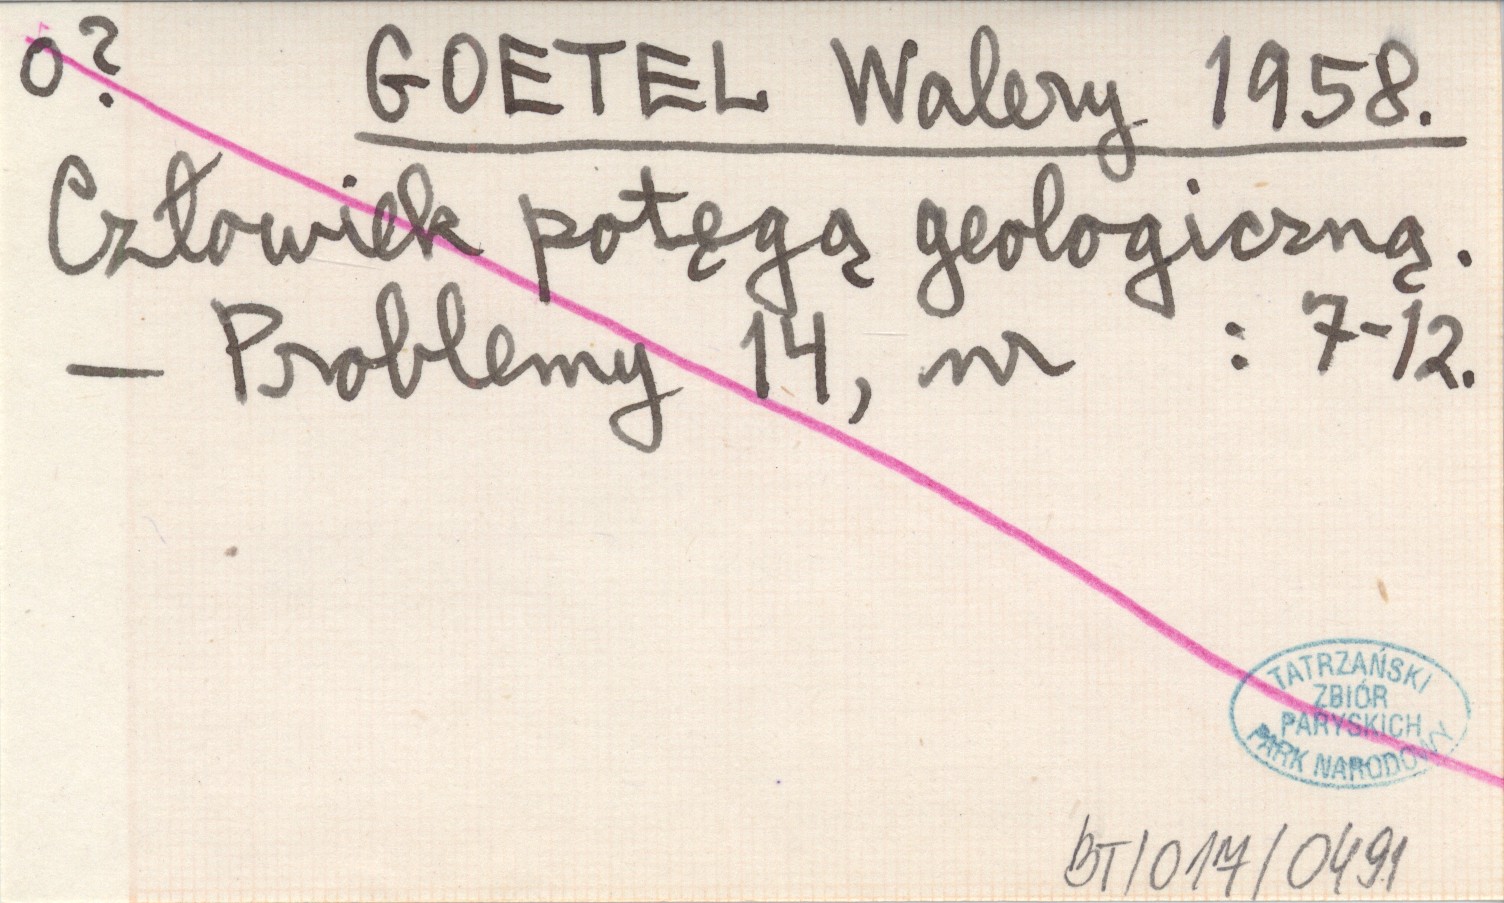 o? GOETEL Walery 1958.
Człowiek potęgą geologiczną.
— Problemy 14, nr : 7-12.
TATRZAŃSKI
ZBIÓR
PARYSKICH
PARK NARODOWY
BT/017/0491